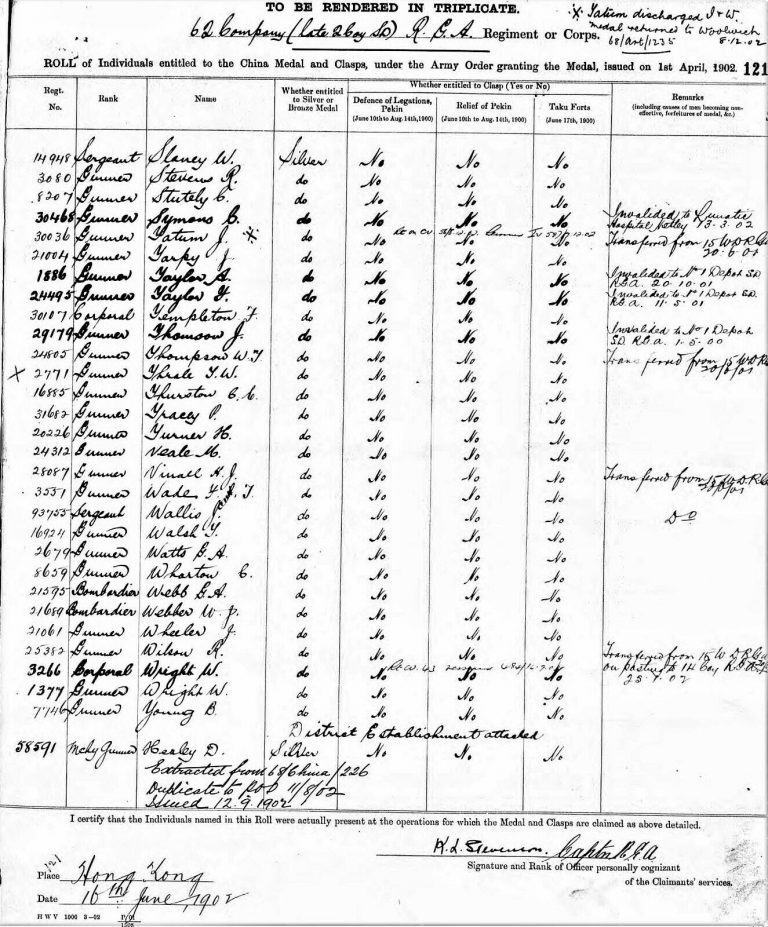 TO BE RENDERED IN TRIPLICATE.
* Tatum discharged I & W.
medal returned to Woolwich
68/Art/1235 8.12.02
62 Company (late 2 Coy SD) R.G.A. Regiment or Corps.
ROLL of Individuals entitled to the China Medal and Clasps, under the Army Order granting the Medal, issued on 1st April, 1902. 121
Regt. No. Rank Name Whether entitled to Silver or Bronze Medal Whether entitled to Clasp (Yes or No) Remarks
Defence of Legations, Pekin (June 10th to Aug. 14th, 1900) Relief of Pekin (June 10th to Aug. 14th, 1900) Taku Forts (June 17th, 1900) (including causes of men becoming non-effective, forfeitures of medal, &c.)
14948 Sergeant Slaney W. Silver No No No
3080 Gunner Stevens R. do No No No
8207 Gunner Stutely C. do No No No
30468 Gunner Symons C. do No No No Invalided to Lunatic Hospital Netley 13-3-02
30036 Gunner Tatum J. * do No No No Transferred from 15 W.D.R.G.A.
21004 Gunner Tarpy J. do No No No
1886 Gunner Taylor A. do No No No Invalided to No 1 Depot S.D. R.G.A. 20.10.01
24495 Gunner Taylor F. do No No No Invalided to No 1 Depot S.D. R.G.A. 11.5.01
30107 Corporal Templeton F. do No No No
29179 Gunner Thomson J. do No No No Invalided to No 1 Depot S.D. R.G.A. 1.5.00
24805 Gunner Thompson W.J. do No No No Transferred from 15 W.D.R.G.A.
X 2771 Gunner Thrale T.W. do No No No
16885 Gunner Thurston C.C. do No No No
31682 Gunner Tracey P. do No No No
20226 Gunner Turner H. do No No No
24312 Gunner Veale M. do No No No
28087 Gunner Vinall H.J. do No No No Transferred from 15 W.D.R.G.A.
3551 Gunner Waden do No No No
93755 Sergeant Wallis do No No No Do
16924 Gunner Walsh T. do No No No
2679 Gunner Watts G.A. do No No No
8659 Gunner Wharton C. do No No No
21595 Bombardier Webb G.A. do No No No
21689 Bombardier Webber W.J. do No No No
21061 Gunner Wheeler J. do No No No
25382 Gunner Wilson R. do No No No Transferred from 15 W.D.R.G.A.
3266 Corporal Wright W. do No No No on posting to 14 Coy R.G.A.
1377 Gunner Wright W. do No No No
7746 Gunner Young B. do No No No
District Establishment attached
58591 Gunner Healey D. Silver No No No
Extracted from 68/China/226
Duplicate to 11/8/02
Issued 12.9.1902
I certify that the Individuals named in this Roll were actually present at the operations for which the Medal and Clasps are claimed as above detailed.
K. L. Stevenson. Captn R.G.A.
Signature and Rank of Officer personally cognizant
of the Claimants' services.
121
Place Hong Kong
Date 16th June, 1902
H W V 1000 3-02